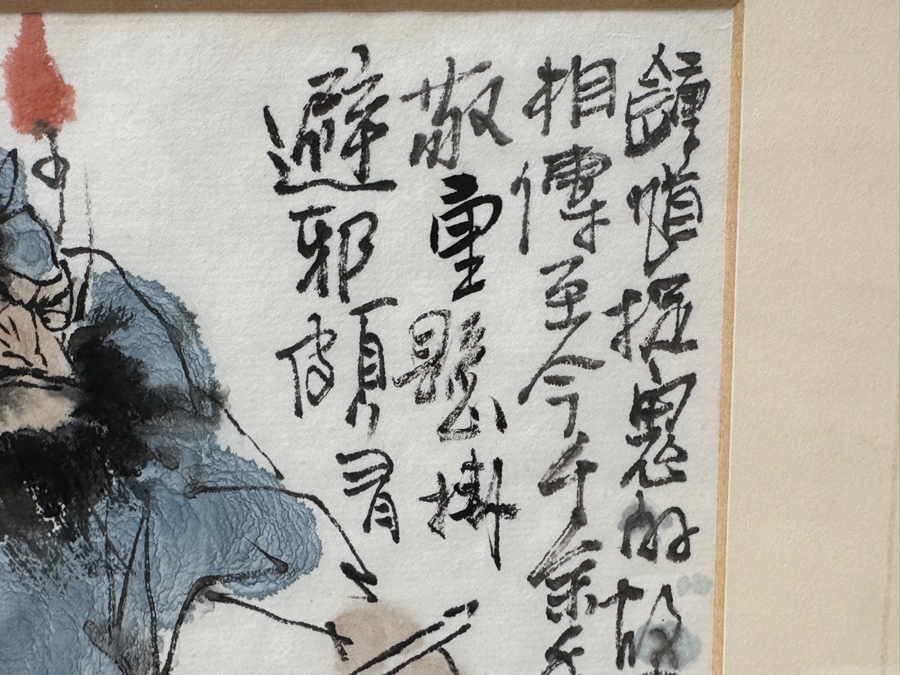 鍾馗捉鬼的故
相傳至今千余年
敬重懸掛
避邪頗有